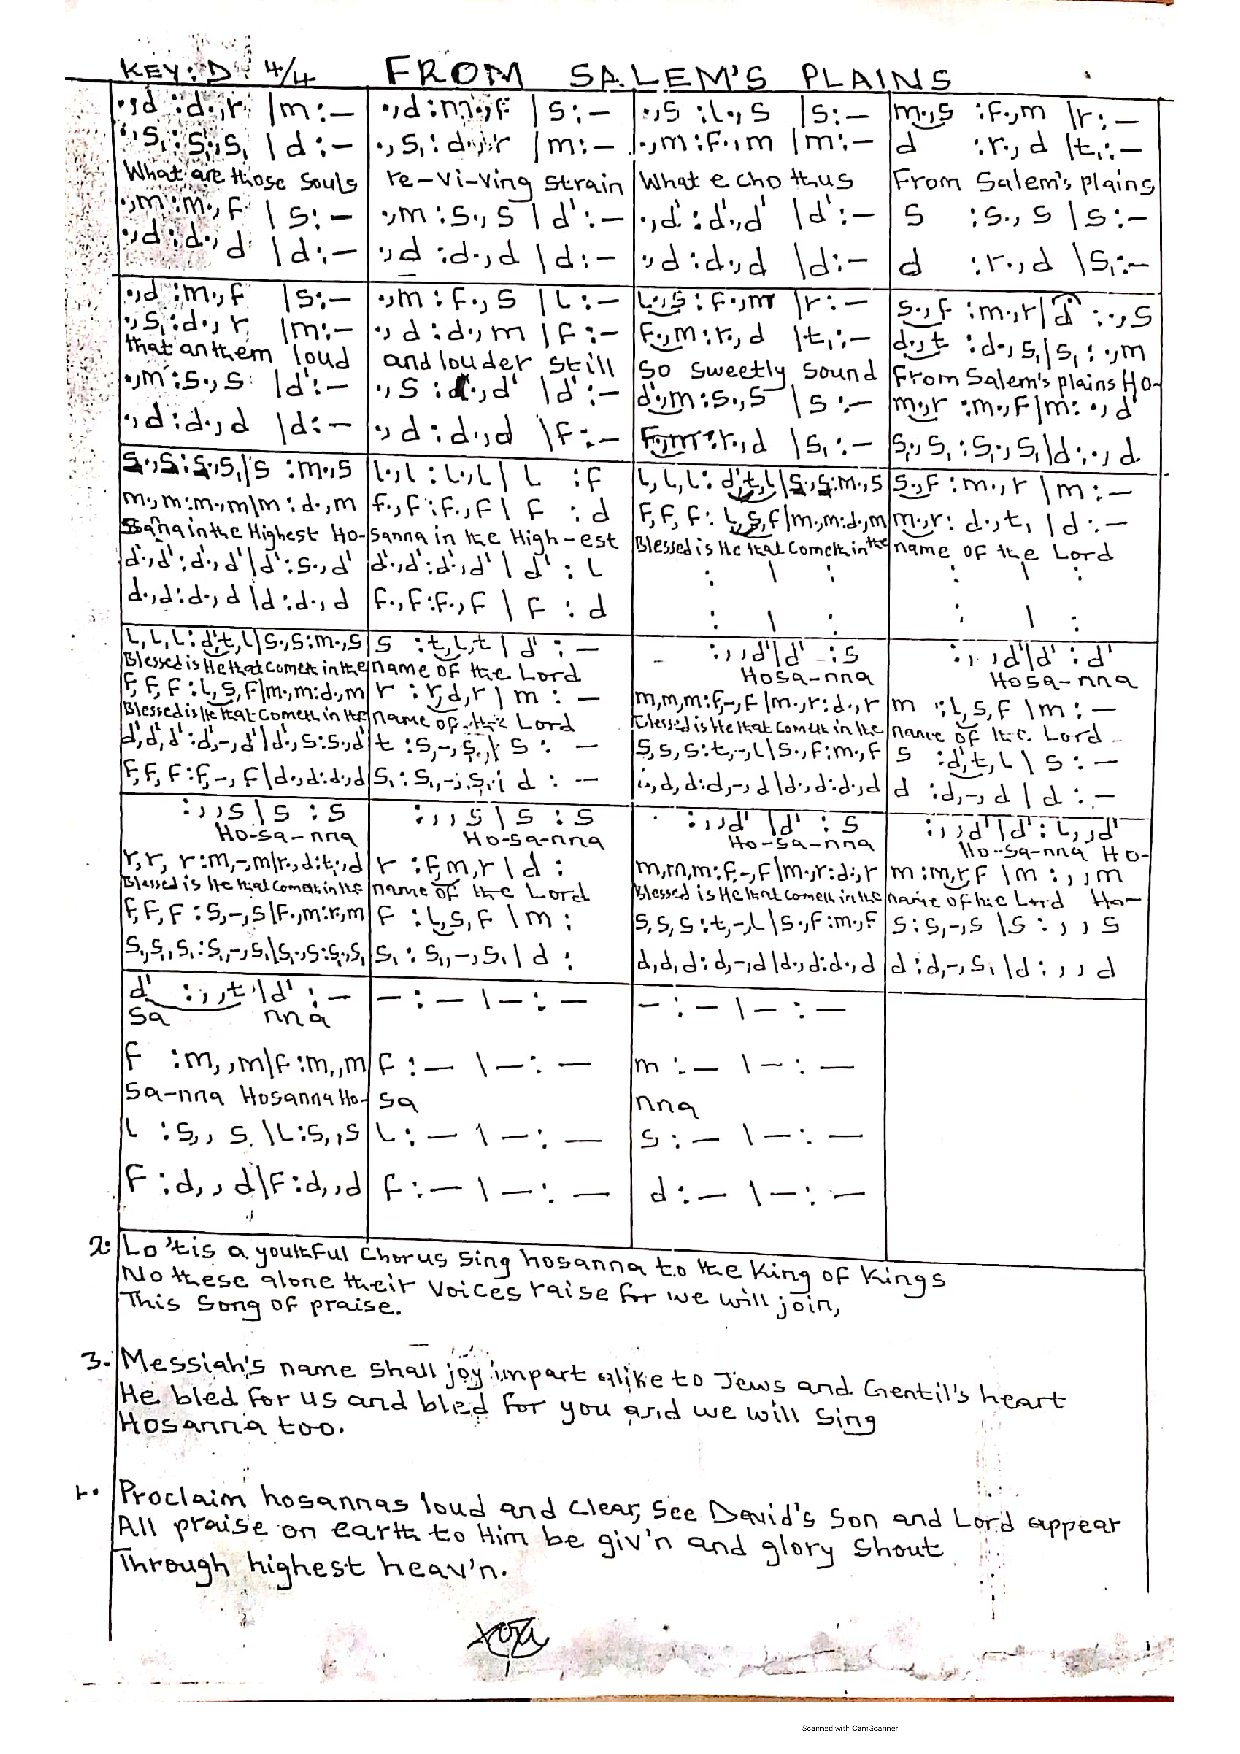 KEY: D 4/4 FROM SALEM'S PLAINS
.,d :d.,r |m:— .,d:m.,f |s:— .,s :l.,s |s:— m.,s :f.,m |r:—
.,s, :s,.,s, |d:— .,s,:d.,r |m:— .,m:f.,m |m:— d :r.,d |t,:—
What are those Souls re-vi-ving strain What echo thus From Salem's plains
.,m:m.,f |s:— .,m:s.,s |d':— .,d':d'.,d' |d':— s :s.,s |s:—
.,d:d.,d |d:— .,d :d.,d |d:— .,d :d.,d |d:— d :r.,d |s,:—
.,d :m.,f |s:— .,m:f.,s |l:— l.,s:f.,m |r:— s.,f :m.,r|d :.,s
.,s,:d.,r |m:— .,d:d.,m |f:— f.,m:r.,d |t,:— d.,t :d.,s,|s, :.,m
that anthem loud and louder still So sweetly sound From Salem's plains Ho-
.,m:s.,s |d':— .,s :d.,d' |d':— d'.,m:s.,s |s:— m.,r :m.,f|m: .,d'
.,d:d.,d |d:— .,d:d.,d |f:— f.,m:r.,d |s,:— s,.,s, :s,.,s,|d:.,d
s.,s:s.,s|s :m.,s l.,l:l.,l| l :f l,l,l: d',t,l|s.,s:m.,s s.,f :m.,r |m:—
m.,m:m.,m|m:d.,m f.,f:f.,f| f :d f,f,f: l,s,f|m.,m:d.,m m.,r: d.,t, |d:—
Sanna in the Highest Ho- Sanna in the High-est Blessed is He that Cometh in the name of the Lord
d'.,d':d'.,d'|d':s.,d' d'.,d':d'.,d'| d' :l : | : : | :
d.,d:d.,d|d:d.,d f.,f:f.,f | f :d : | : : | :
l,l,l:d',t,l|s.,s:m.,s s :t,l,t|d' :— :,,d'|d' :s :,,d'|d' :d'
Blessed is He that Cometh in the name of the Lord Hosa-nna Hosa-nna
f,f,f:l,s,f|m.,m:d.,m r :r,d,r|m :— m,m,m:f,-,f|m.,r:d.,r m :l,s,f |m:—
Blessed is He that Cometh in the name of the Lord Blessed is He that Cometh in the name of the Lord
d',d',d':d',-,d'|d'.,s:s.,d' t :s,-,s,| s :— s,s,s:t,-,l|s.,f:m.,f s :d',t,l| s:—
f,f,f:f,-,f|d.,d:d.,d s,:s,,-,s,| d :— d,d,d:d,-,d|d.,d:d.,d d :d,-,d | d:—
:,,s|s :s :,,s|s :s :,,d'|d' :s :,,d'|d':l,,d'
Ho-sa-nna Ho-sa-nna Ho-sa-nna Ho-sa-nna Ho-
r,r,r:m,-,m|r.,d:t,.,d r :f,m,r|d : m,m,m:f,-,f|m.,r:d.,r m:m,r,f |m:,,m
Blessed is He that Cometh in the name of the Lord Blessed is He that Cometh in the name of the Lord Ho-
f,f,f:s,-,s|f.,m:r,m f :l,s,f |m: s,s,s:t,-,l|s.,f:m.,f s:s,-,s |s:,,s
s,,s,,s,:s,,-,s,|s,.,s,:s,.,s, s,:s,,-,s,|d: d,d,d:d,-,d|d.,d:d.,d d:d,-,s, |d:,,d
d' :,,t|d' :— —:—|—:— —:—|—:—
Sa nna
f :m,,m|f:m,,m f:—|—:— m:—|—:—
Sa-nna Hosanna Ho- Sa nna
l :s,,s|l:s,,s l:—|—:— s:—|—:—
f:d,,d|f:d,,d f:—|—:— d:—|—:—
2. Lo 'tis a youthful Chorus Sing hosanna to the King of Kings
No these alone their Voices raise for we will join,
This Song of praise.
3. Messiah's name Shall joy impart alike to Jews and Gentil's heart
He bled for us and bled for you and we will Sing
Hosanna too.
Proclaim hosannas loud and Clear, See David's Son and Lord appear
All praise on earth to Him be giv'n and glory Shout
Through highest heav'n.
Scanned with CamScanner